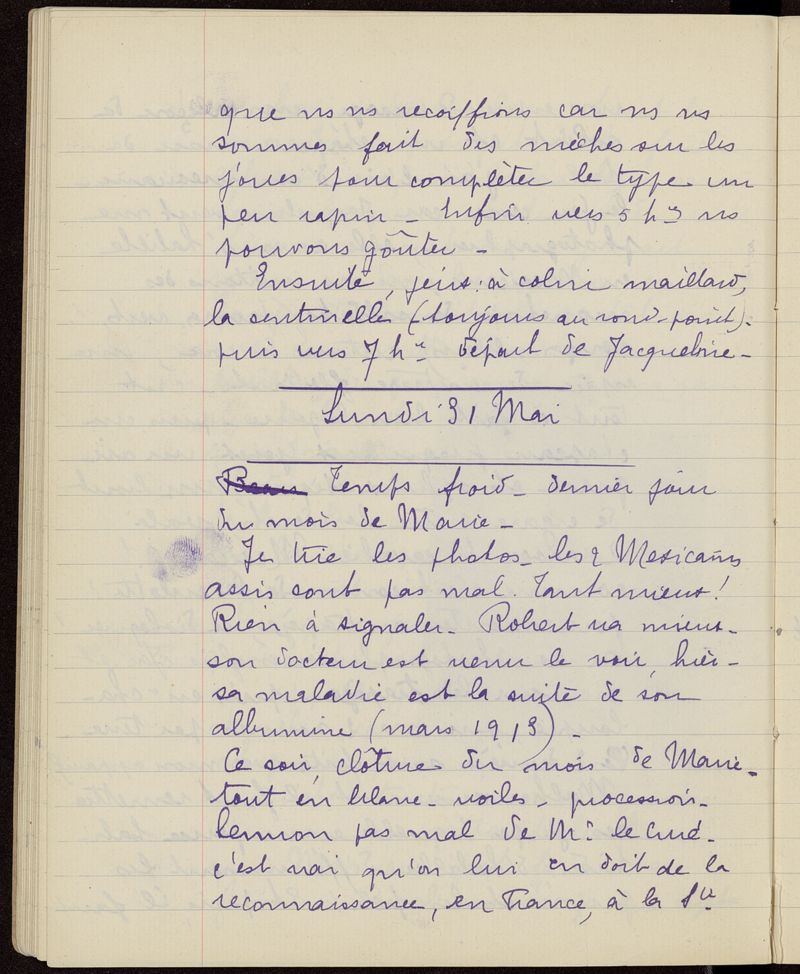 que ns ns recoiffions car ns ns
sommes fait des mèches sur les
joues pour compléter le type un
peu rapin _ Enfin vers 5 h ns
pouvons goûter _
Ensuite, jeux : à colin maillard,
la sentinelle (toujours au rond-point).
puis vers 7 h départ de Jacqueline _
Lundi 31 Mai
Beau Temps froid _ dernier jour
du mois de Marie _
Je tire les photos _ les 2 Mexicains
assis sont pas mal. Tant mieux !
Rien à signaler _ Robert va mieux _
son docteur est venu le voir, hier _
sa maladie est la suite de son
albumine (mars 1913) _
Ce soir, clôture du mois de Marie _
tout en blanc _ voiles _ procession _
sermon pas mal de Mr le Curé _
c'est vrai qu'on lui en doit de la
reconnaissance, en France, à la Ste